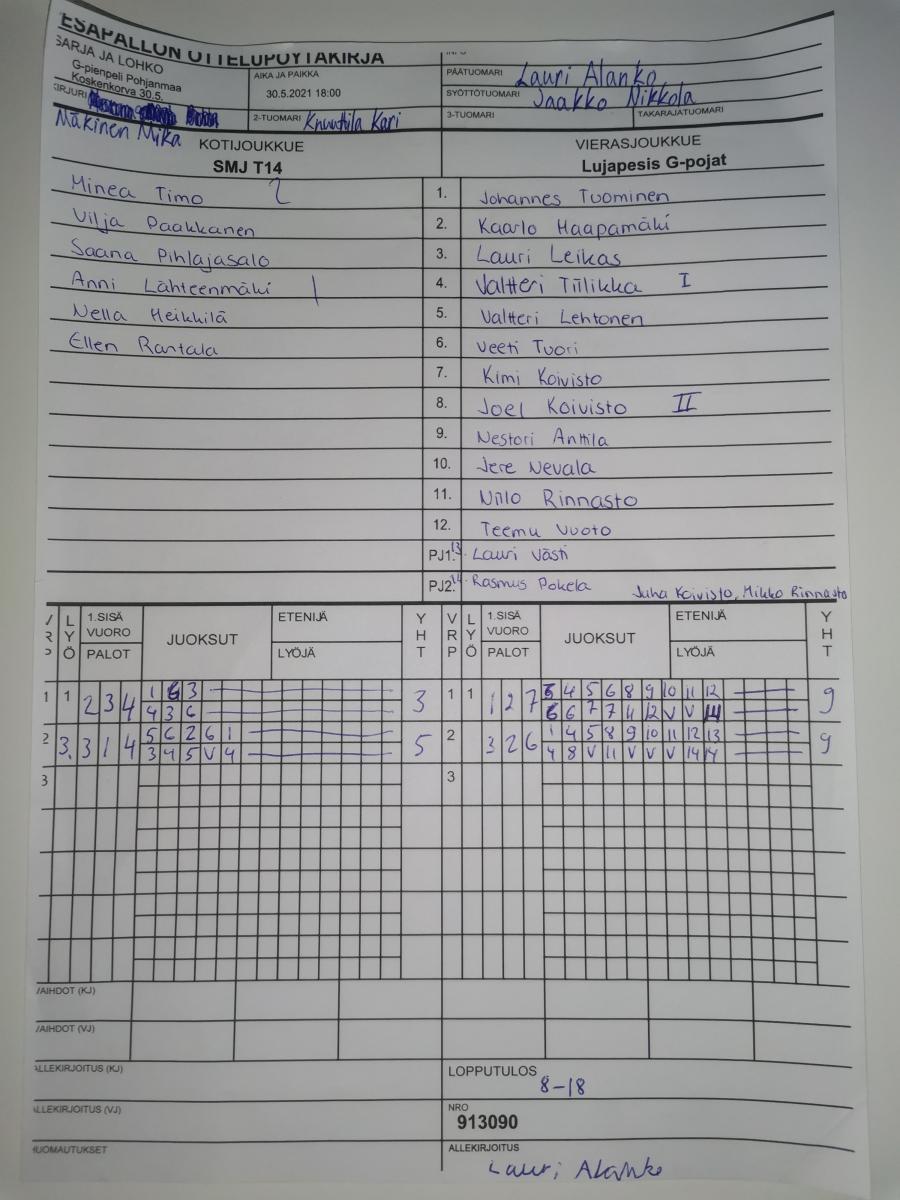 ESAPALLON OTTELUPÖYTÄKIRJA
SARJA JA LOHKO
G-pienpeli Pohjanmaa
Koskenkorva 30.5.
KIRJURI
Mäkinen Mika
AIKA JA PAIKKA
30.5.2021 18:00
2-TUOMARI Knuuttila Kari
PÄÄTUOMARI Lauri Alanko
SYÖTTÖTUOMARI Jaakko Nikkola
3-TUOMARI TAKARAJATUOMARI
KOTIJOUKKUE VIERASJOUKKUE
SMJ T14 Lujapesis G-pojat
Minea Timo 2 1. Johannes Tuominen
Vilja Paakkanen 2. Kaarlo Haapamäki
Saana Pihlajasalo 3. Lauri Leikas
Anni Lähteenmäki | 4. Valtteri Tiilikka I
Nella Heikkilä 5. Valtteri Lehtonen
Ellen Rantala 6. Veeti Tuori
7. Kimi Koivisto
8. Joel Koivisto II
9. Nestori Anttila
10. Jere Nevala
11. Niilo Rinnasto
12. Teemu Vuoto
PJ1: 13. Lauri Västi
PJ2: 14. Rasmus Pokela Juha Koivisto, Mikko Rinnasto
LYÖ 1.SISÄ VUORO PALOT JUOKSUT ETENIJÄ LYÖJÄ YHT VRP LYÖ 1.SISÄ VUORO PALOT JUOKSUT ETENIJÄ LYÖJÄ YHT
1 1 2 3 4 1 6 3 3 1 1 1 2 7 3 4 5 6 8 9 10 11 12 9
4 3 6 6 6 7 7 11 12 V V 14
2 3. 3 1 4 5 6 2 6 1 5 2 3 2 6 1 4 5 8 9 10 11 12 13 9
3 4 5 V 4 4 8 V 11 V V V 14 14
3 3
VAIHDOT (KJ)
VAIHDOT (VJ)
ALLEKIRJOITUS (KJ) LOPPUTULOS
8-18
ALLEKIRJOITUS (VJ) NRO
913090
HUOMAUTUKSET ALLEKIRJOITUS
Lauri Alanko